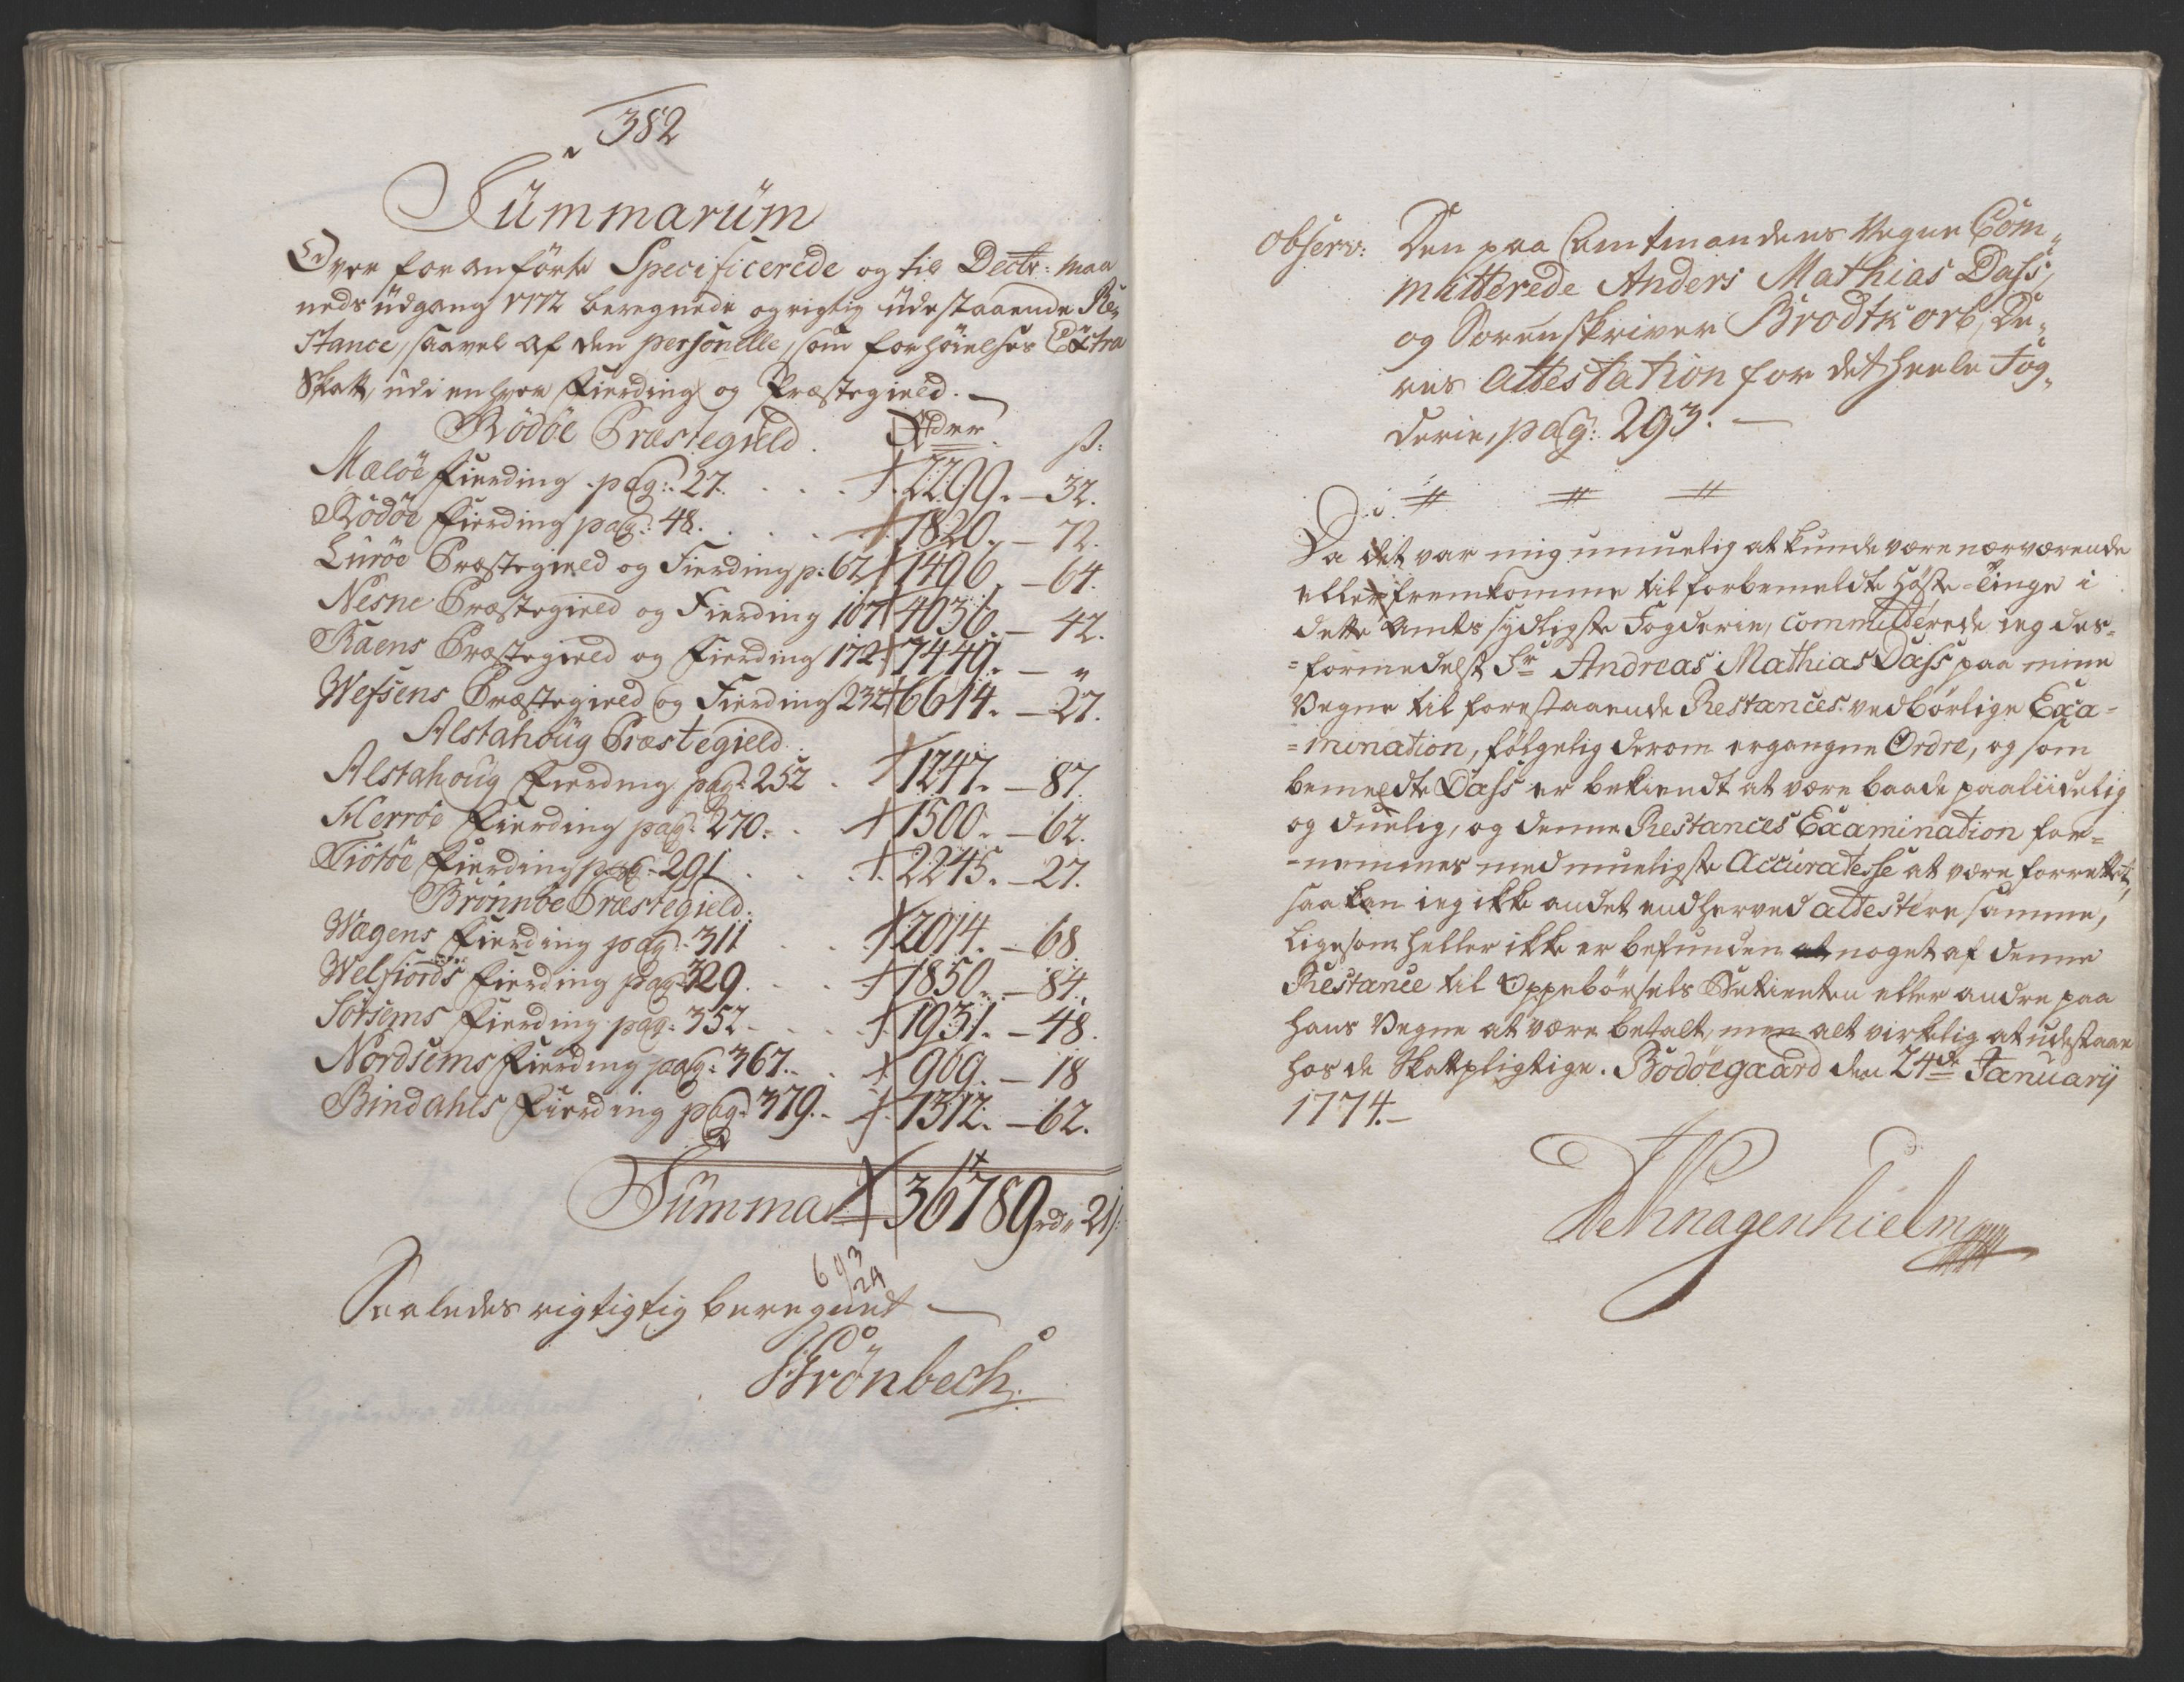 382
Sümmarüm
Over foranförte Specificerede og til Decbr: Maa
neds üdgang 1772 beregnede og rigtig üdestaaende Re„
stance, saavel af den personelle, som forhöielses Extra
Skatt, udi enhver Fierding og Præstegield. —
Rödöe Præstegield. Rdr ß:
Meløe Fierding pag: 27. . . . 2299. — 32.
Rödöe Fierding pag: 48. . . . 1820. — 72.
Luröe Præstegield og Fierding p: 62 1496. — 64.
Nesne Præstegield og Fierding 107 4036. — 42.
Raens Præstegield og Fierding 172. 7449. — „
Wefsens Præstegield og Fierding 232 6614. — 27.
Alstahoug Præstegield
Alstahoug Fierding pag: 252 . 1247. — 87.
Herröe Fierding pag: 270. . 1500. — 62.
Tiötöe Fierding pag: 291 . . . 2245. — 27.
Brönnöe Præstegield.
Wægens Fierding pag: 311 . . . 2014. — 68.
Welfiords Fierding pag 329. . . 1850. — 84.
Sörsems Fierding pag: 352 . . . 1931. — 48.
Nordsems Fierding pag: 367. . . 969. — 18
Bindahls Fierding pag: 379. . 1312. — 62.
Sümma 36789 rd. 21ß:
693
29
Saaledes rigtigtig beregnet —
Grönbech
Observ: Den paa Amtmandens Vegne Com„
mitterede Anders Mathias Dass,
og Sorenskriver Brodtkorb, De„
res Attestation for det heele Fog„
derie, pag: 293. —
Da det var mig umuelig at kunde være nærværende
eller fremkomme til forbemeldte Höste-Tinge i
dette Amts sydligste Fogderie, committerede ieg des-
=formedelst Sr Andreas Mathias Dass paa mine
Vegne til forestaaende Restances vedbörlige Exa-
=mination, fölgelig derom ergangne Ordre, og som
bemeldte Dass er bekiendt at være baade paaliidelig
og duelig, og denne Restances Examination for=
-nemmes med mueligste Accuratesse at være forrettet,
saa kan ieg ikke andet end herved attestere samme,
ligesom heller ikke er befunden at noget af denne
Restance til Oppebörsels Betienten eller andre paa
hans Vegne at være betalt, men alt virkelig at udestaae
hos de Skattpligtige. Bodöegaard den 24de Januarij
1774.—
Knagenhielm